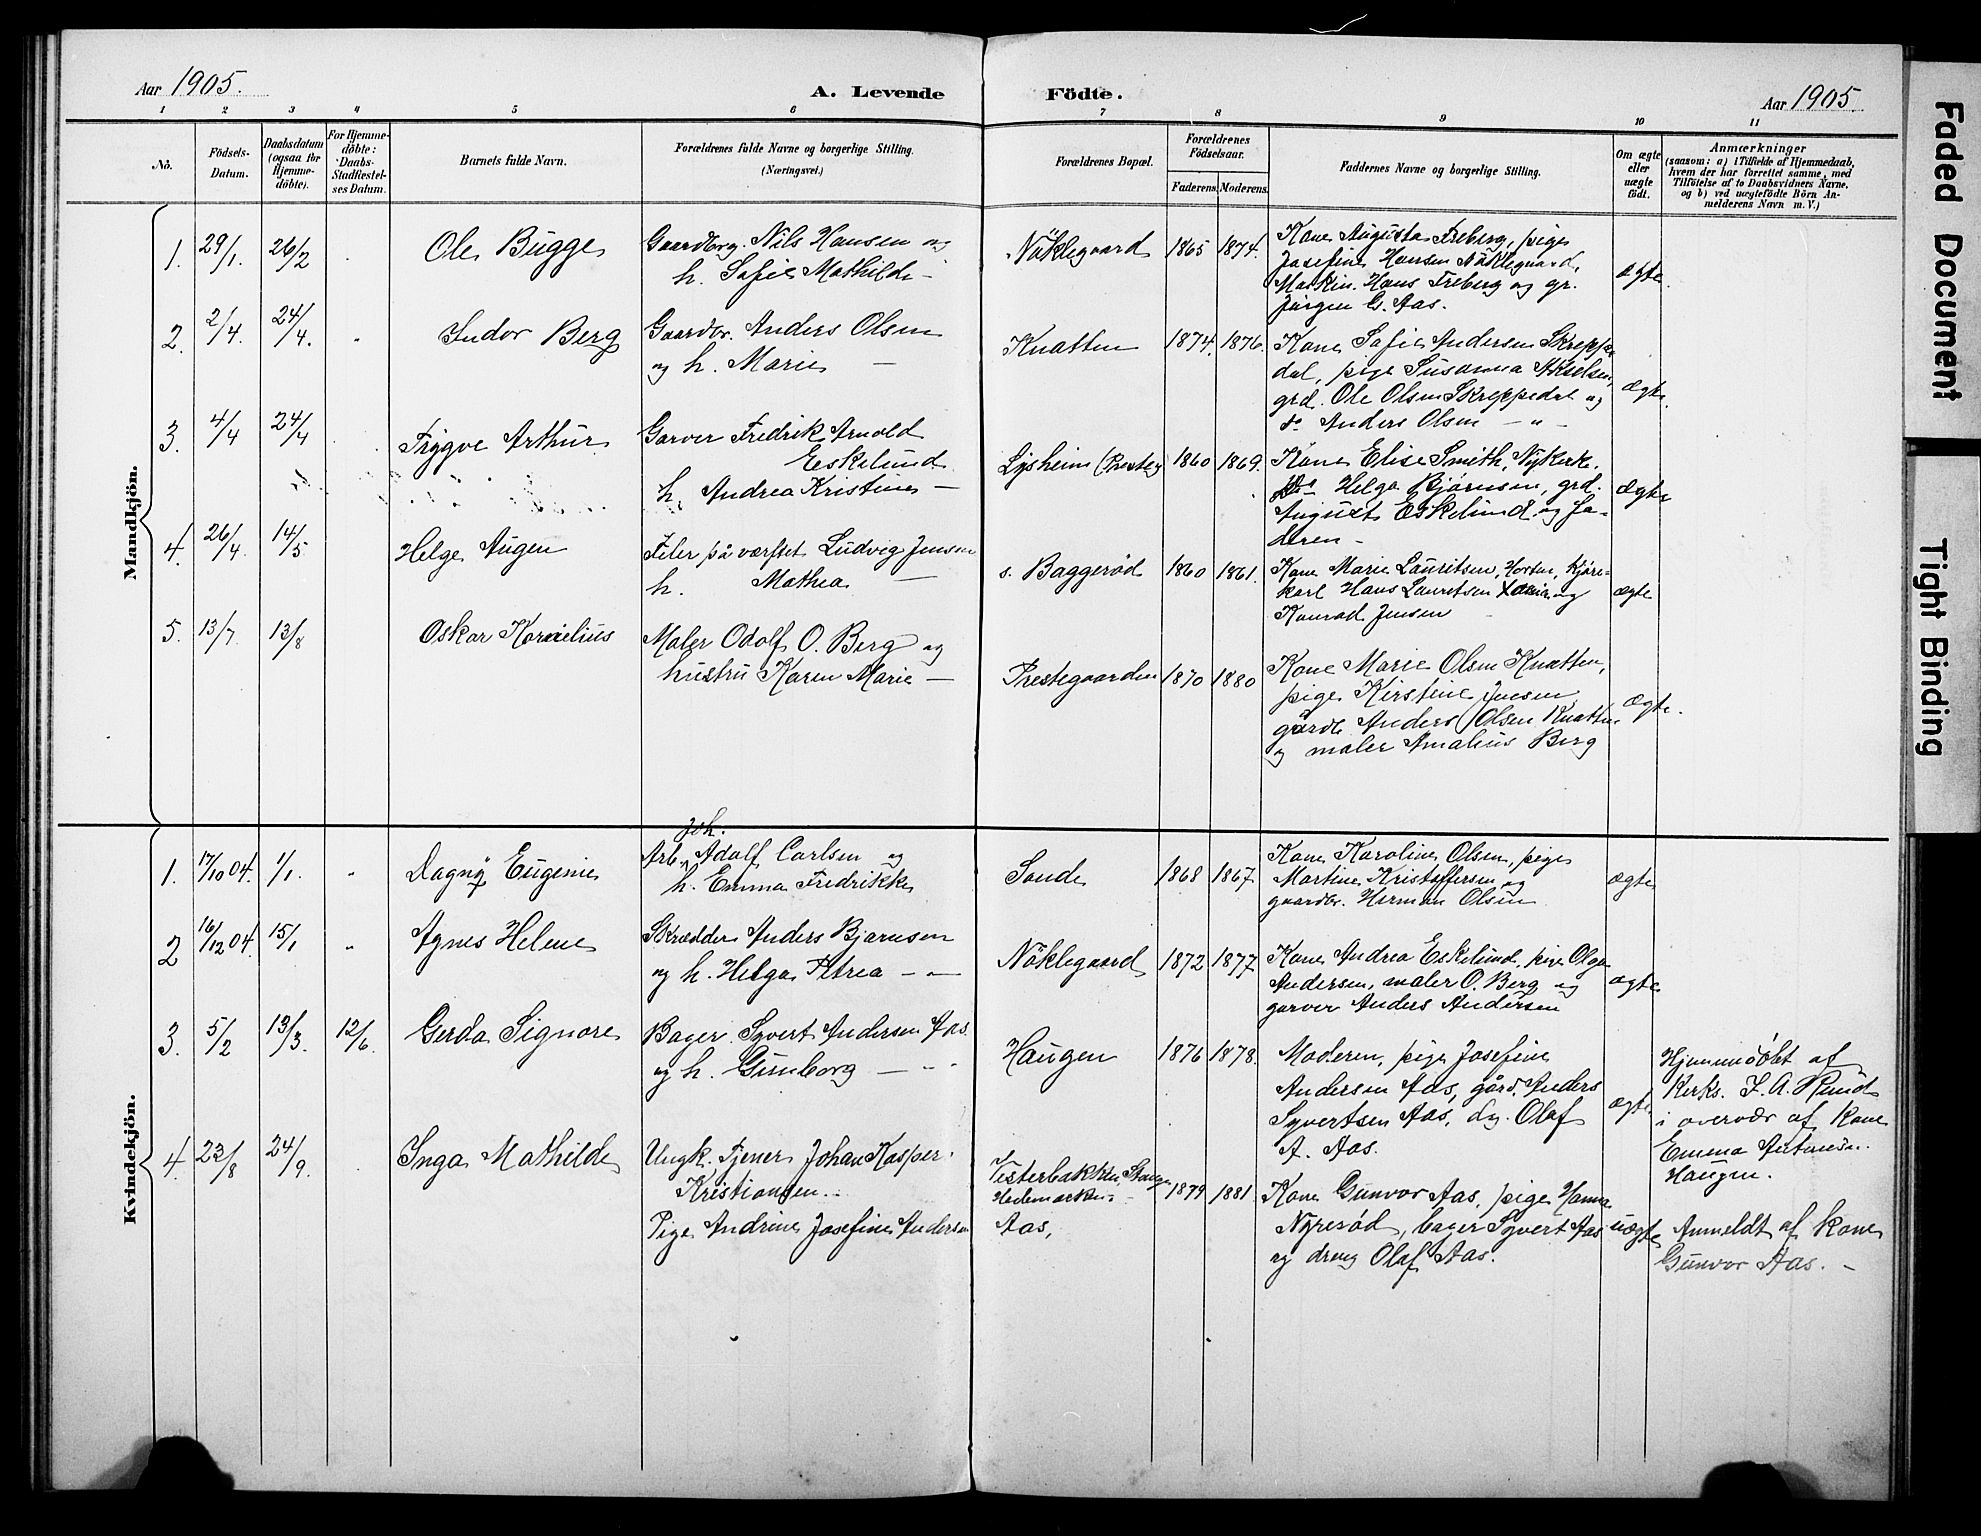 Aar 1905.
A. Levende Födte.
Aar 1905.
1 2 3 4 5 6 7 8 9 10 11
No.
Födsels-
Datum.
Daabsdatum
(ogsaa for
Hjemme-
döbte).
For Hjemme-
döbte:
Daabs-
Stadfæstel-
ses Datum.
Barnets fulde Navn.
Forældrenes fulde Navne og borgerlige Stilling.
(Næringsvei.)
Forældrenes Bopæl.
Forældrenes
Födselsaar.
Faderens. Moderens.
Faddernes Navne og borgerlige Stilling.
Om ægte
eller
uægte
födt.
Anmærkninger
(saasom: a) i Tilfælde af Hjemmedaab,
hvem der har forrettet samme, med
Tilföielse af to Daabsvidners Navne,
og b) ved uægtefödte Börn An-
melderens Navn m. V.)
Mandkjön.
1. 29/1. 26/2 Ole Bugge
Gaardbrg. Nils Hansen og
h. Sofie Mathilde –
Nöklegaard 1865 1874.
Kone Augusta Freberg, pige
Josefine Hansen Nöklegaard,
Maskin. Hans Freberg og gr.
Jörgen C. Aas.
ægte.
2. 2/4. 24/4. Indor Berg
Gaardbr. Anders Olsen
og h. Marie –
Knatten 1874. 1876.
Kone Sofie Andersen Skreppe
dal, pige Susanna Akselsen,
grd. Ole Olsen Skreppedal og
do Anders Olsen – " –
Ægte.
3. 4/4 24/4 Trygve Arthur
Garver Fredrik Arnold
Eskelund
h. Andrea Kristine –
Lysheim (Presteg 1860 1869.
Kone Elise Smith, Nykirke.
Helga Bjørnsen, grd.
August Eskelund og fa-
deren –
Ægte
4. 26/4. 14/5 Helge Augen
Filer på værftet Ludvig Jensen
h. Mathea –
s. Baggerød 1860 1861.
Kone Marie Lauritsen, Horten, Kjøre-
karl Hans Lauritsen og
Konrad Jensen
ægte
5. 13/7. 13/8 Oskar Kornelius
Maler Odolf O. Berg og
hustru Karen Marie –
Prestegaarden 1870 1880
Kone Marie Olsen Knatten,
pige Kirstine Jensen
gårdb. Anders Olsen Knatten
og maler Amalius Berg
Ægte.
Kvindekjön.
1. 17/10 04. 1/1. " Dagny Eugenie
Joh.
Arb. Adolf Carlsen og
h. Emma Fredrikke
Sande 1868 1867
Kone Karoline Olsen, pige
Martine Kristoffersen og
gaardbr. Herman Olsen
ægte
2 16/12 04. 15/1 " Agnes Helene
Skrædder Anders Bjørnsen
og h. Helga Petrea – –
Nöklegaard 1872 1877
Kone Andrea Eskelund, pige Olga
Andersen, maler O. Berg og
garver Anders Andersen
ægte
3. 5/2 13/3. 12/6. Gerda Signore
Bager Syvert Andersen Aas
og h. Gunborg – "
Haugen 1876 1878.
Moderen, pige Josefine
Andersen Aas, gård. Anders
Syvertsen Aas, dg. Olaf
A. Aas.
ægte
Hjemmedöbt af
Kirks. F. A. Rund
i overvær af kone
Emma Antonsen.
Haugen.
4. 23/8 24/9. Inga Mathilde
Ungk. Tjener Johan Kasper
Kristiansen..
Pige Andrine Josefine Andersen
Vesterbakken, Stange
Hedemarken –
Aas,
1879 1881
Kone Gunvor Aas, pige Hanna
Nyresød, bager Syvert Aas
og dreng Olaf Aas.
uægte
Anmeldt af kone
Gunvor Aas. –
Faded Document
Tight Binding